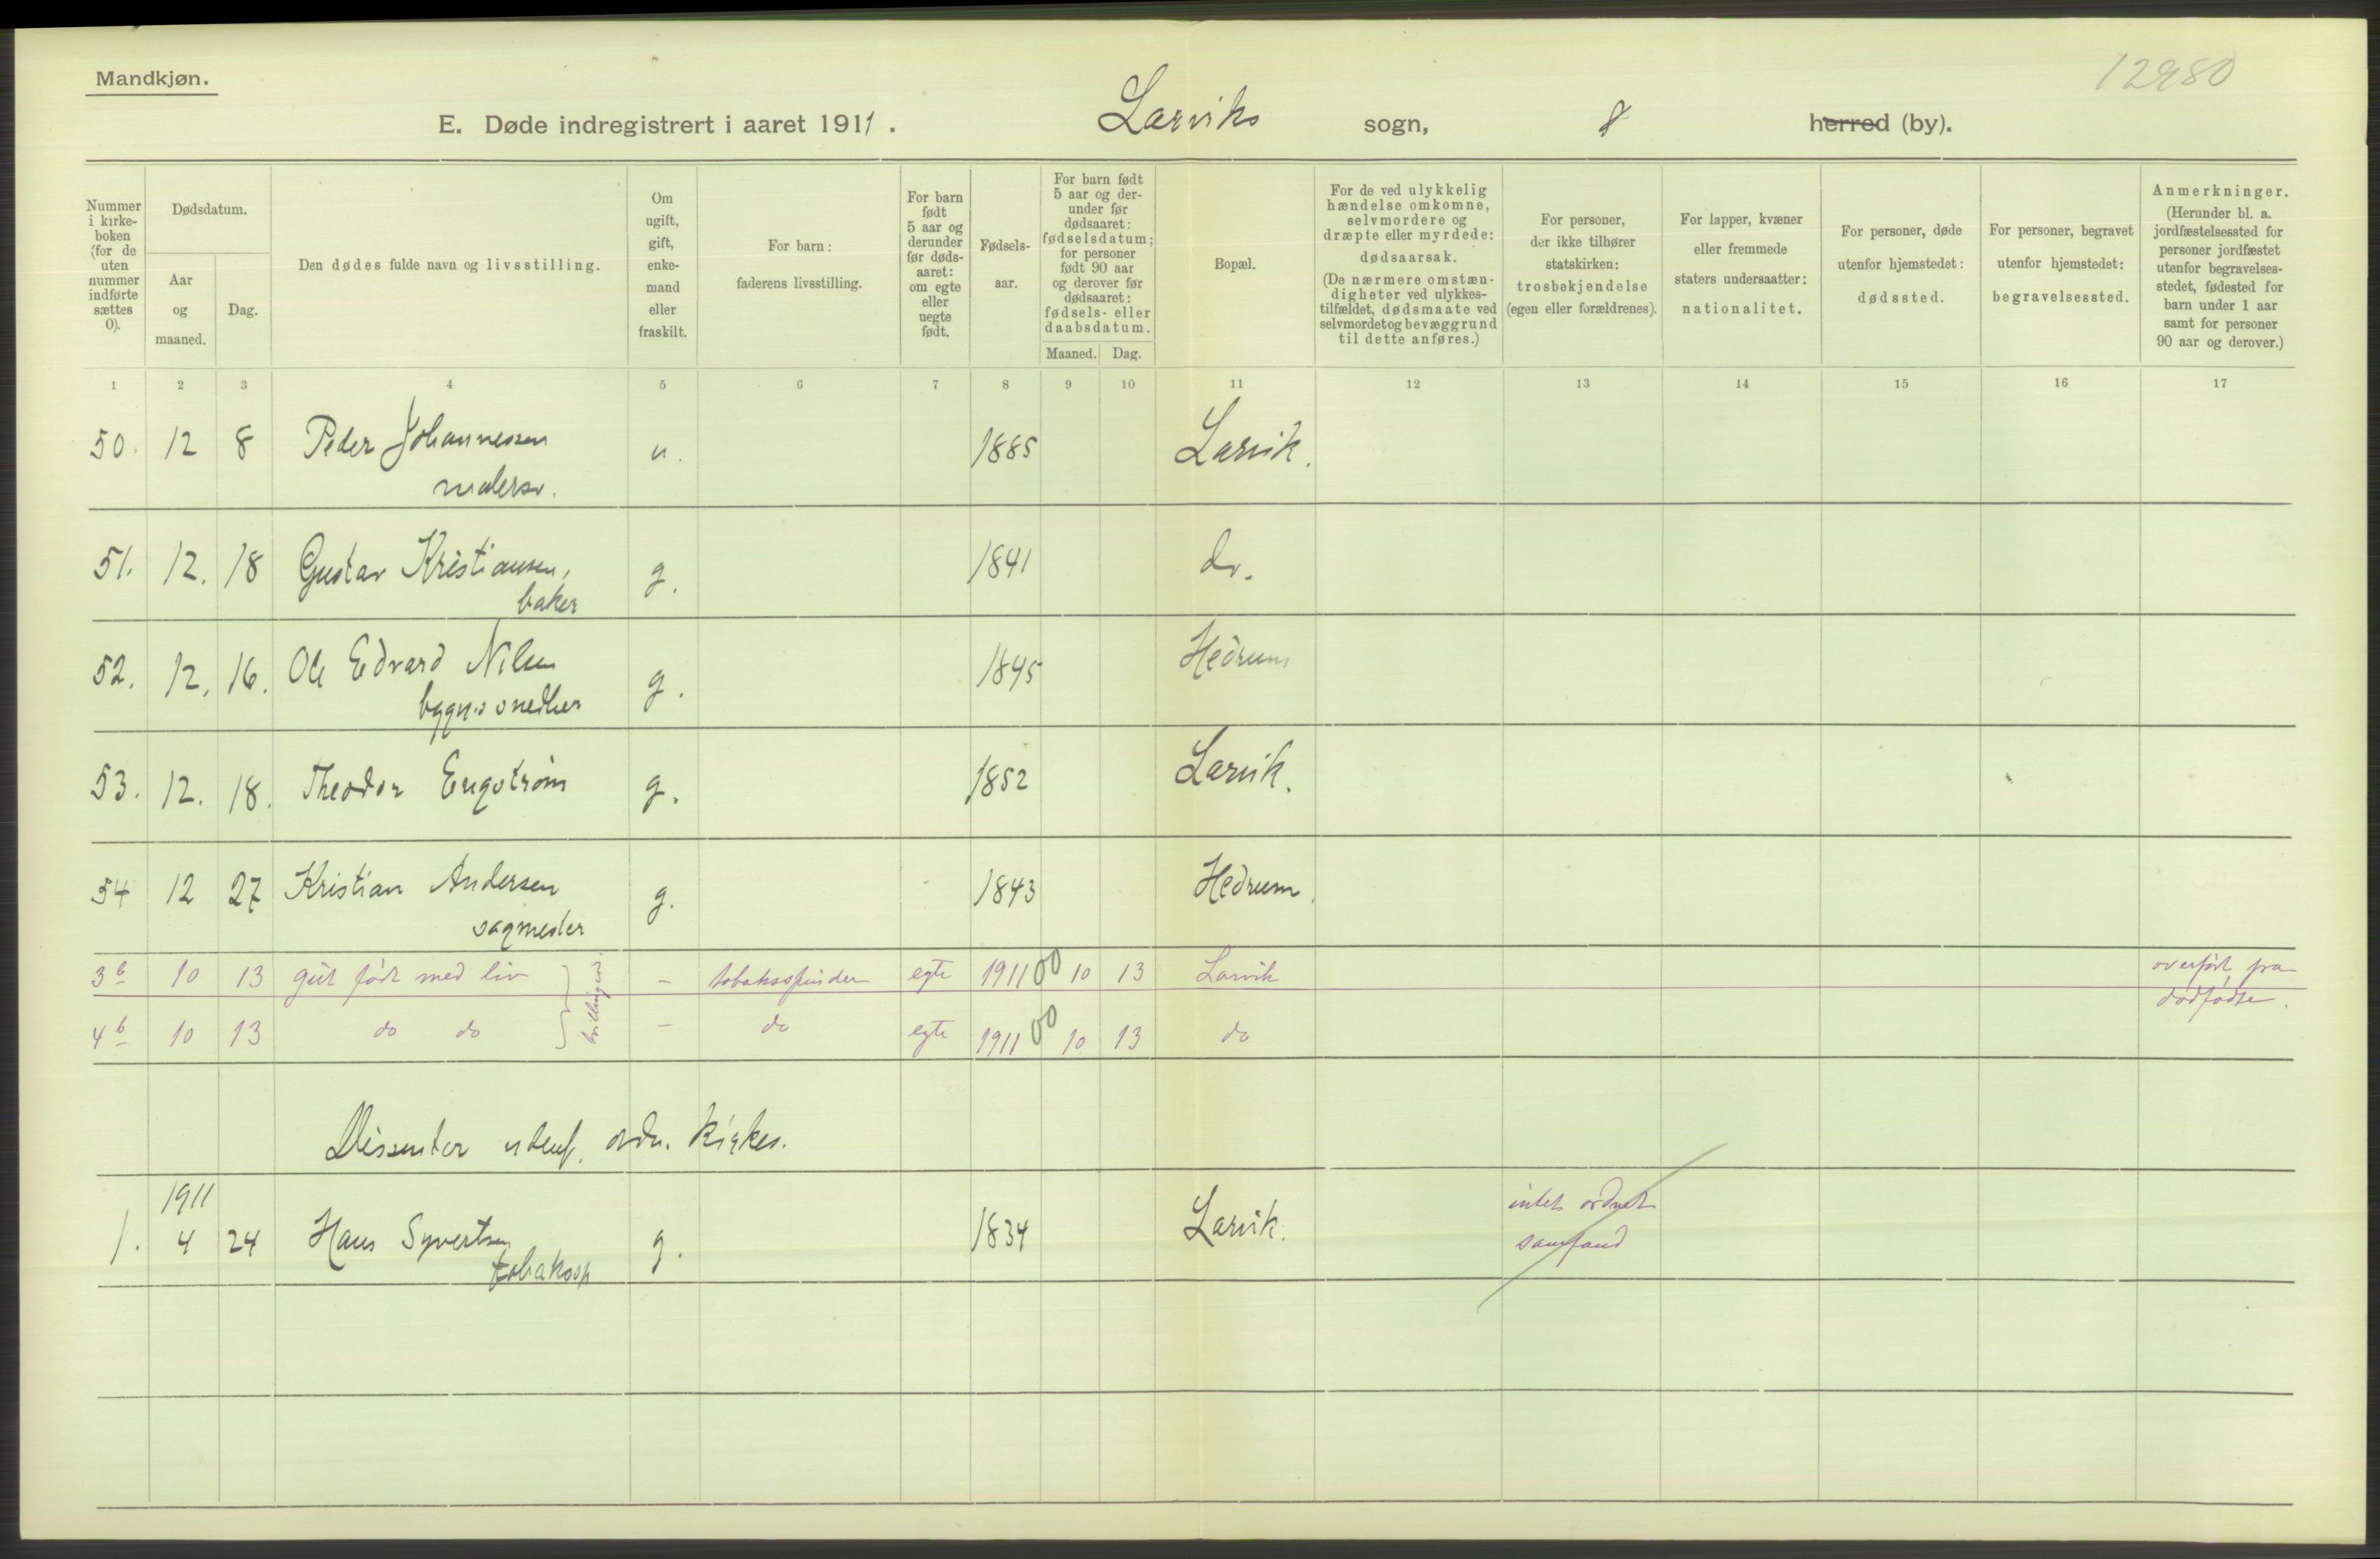 Mandkjøn.
12980
E. Døde indregistrert i aaret 1911. Larviks sogn, herred (by).
Nummer i kirkeboken (for de uten nummer indførte sættes 0).
Dødsdatum.
Aar og maaned.
Dag.
Den dødes fulde navn og livsstilling.
Om ugift, gift, enkemand eller fraskilt.
For barn: faderens livsstilling.
For barn født 5 aar og derunder før dødsaaret: om egte eller uegte født.
Fødselsaar.
For barn født 5 aar og derunder før dødsaaret: fødselsdatum; for personer født 90 aar og derover før dødsaaret: fødsels- eller daabsdatum.
Maaned. Dag.
Bopæl.
For de ved ulykkelig hændelse omkomne, selvmordere og dræpte eller myrdede: dødsaarsak.
(De nærmere omstændigheter ved ulykkestilfældet, dødsmaate ved selvmordet og bevæggrund til dette anføres.)
For personer, der ikke tilhører statskirken: trosbekjendelse (egen eller forældrenes).
For lapper, kvæner eller fremmede staters undersaatter: nationalitet.
For personer, døde utenfor hjemstedet: dødssted.
For personer, begravet utenfor hjemstedet: begravelsessted.
Anmerkninger.
(Herunder bl. a. jordfæstelsessted for personer jordfæstet utenfor begravelsesstedet, fødested for barn under 1 aar samt for personer 90 aar og derover.)
1 2 3 4 5 6 7 8 9 10 11 12 13 14 15 16 17
50. 12 8 Peder Johannessen u. 1885 Larvik.
malersv.
51. 12. 18 Gustav Kristiansen, g. 1841 do.
baker
52. 12. 16. Ole Edvard Nilsen g. 1845 Hedrum
bygn.snedker
53. 12. 18. Theodor Engström g. 1852 Larvik.
54 12 27 Kristian Andersen g. 1843 Hedrum
sagmester
3b 10 13 gut født med liv tvillinger - tobaksspinder egte 1911 00 10 13 Larvik overført fra
dødfødte.
4b 10 13 do do - do egte 1911 00 10 13 do
Dissenter utenf. ordn. kirkes.
1911
1. 4 24 Hans Syvertsen g. 1834 Larvik. intet ordnet
tobakssp samfund